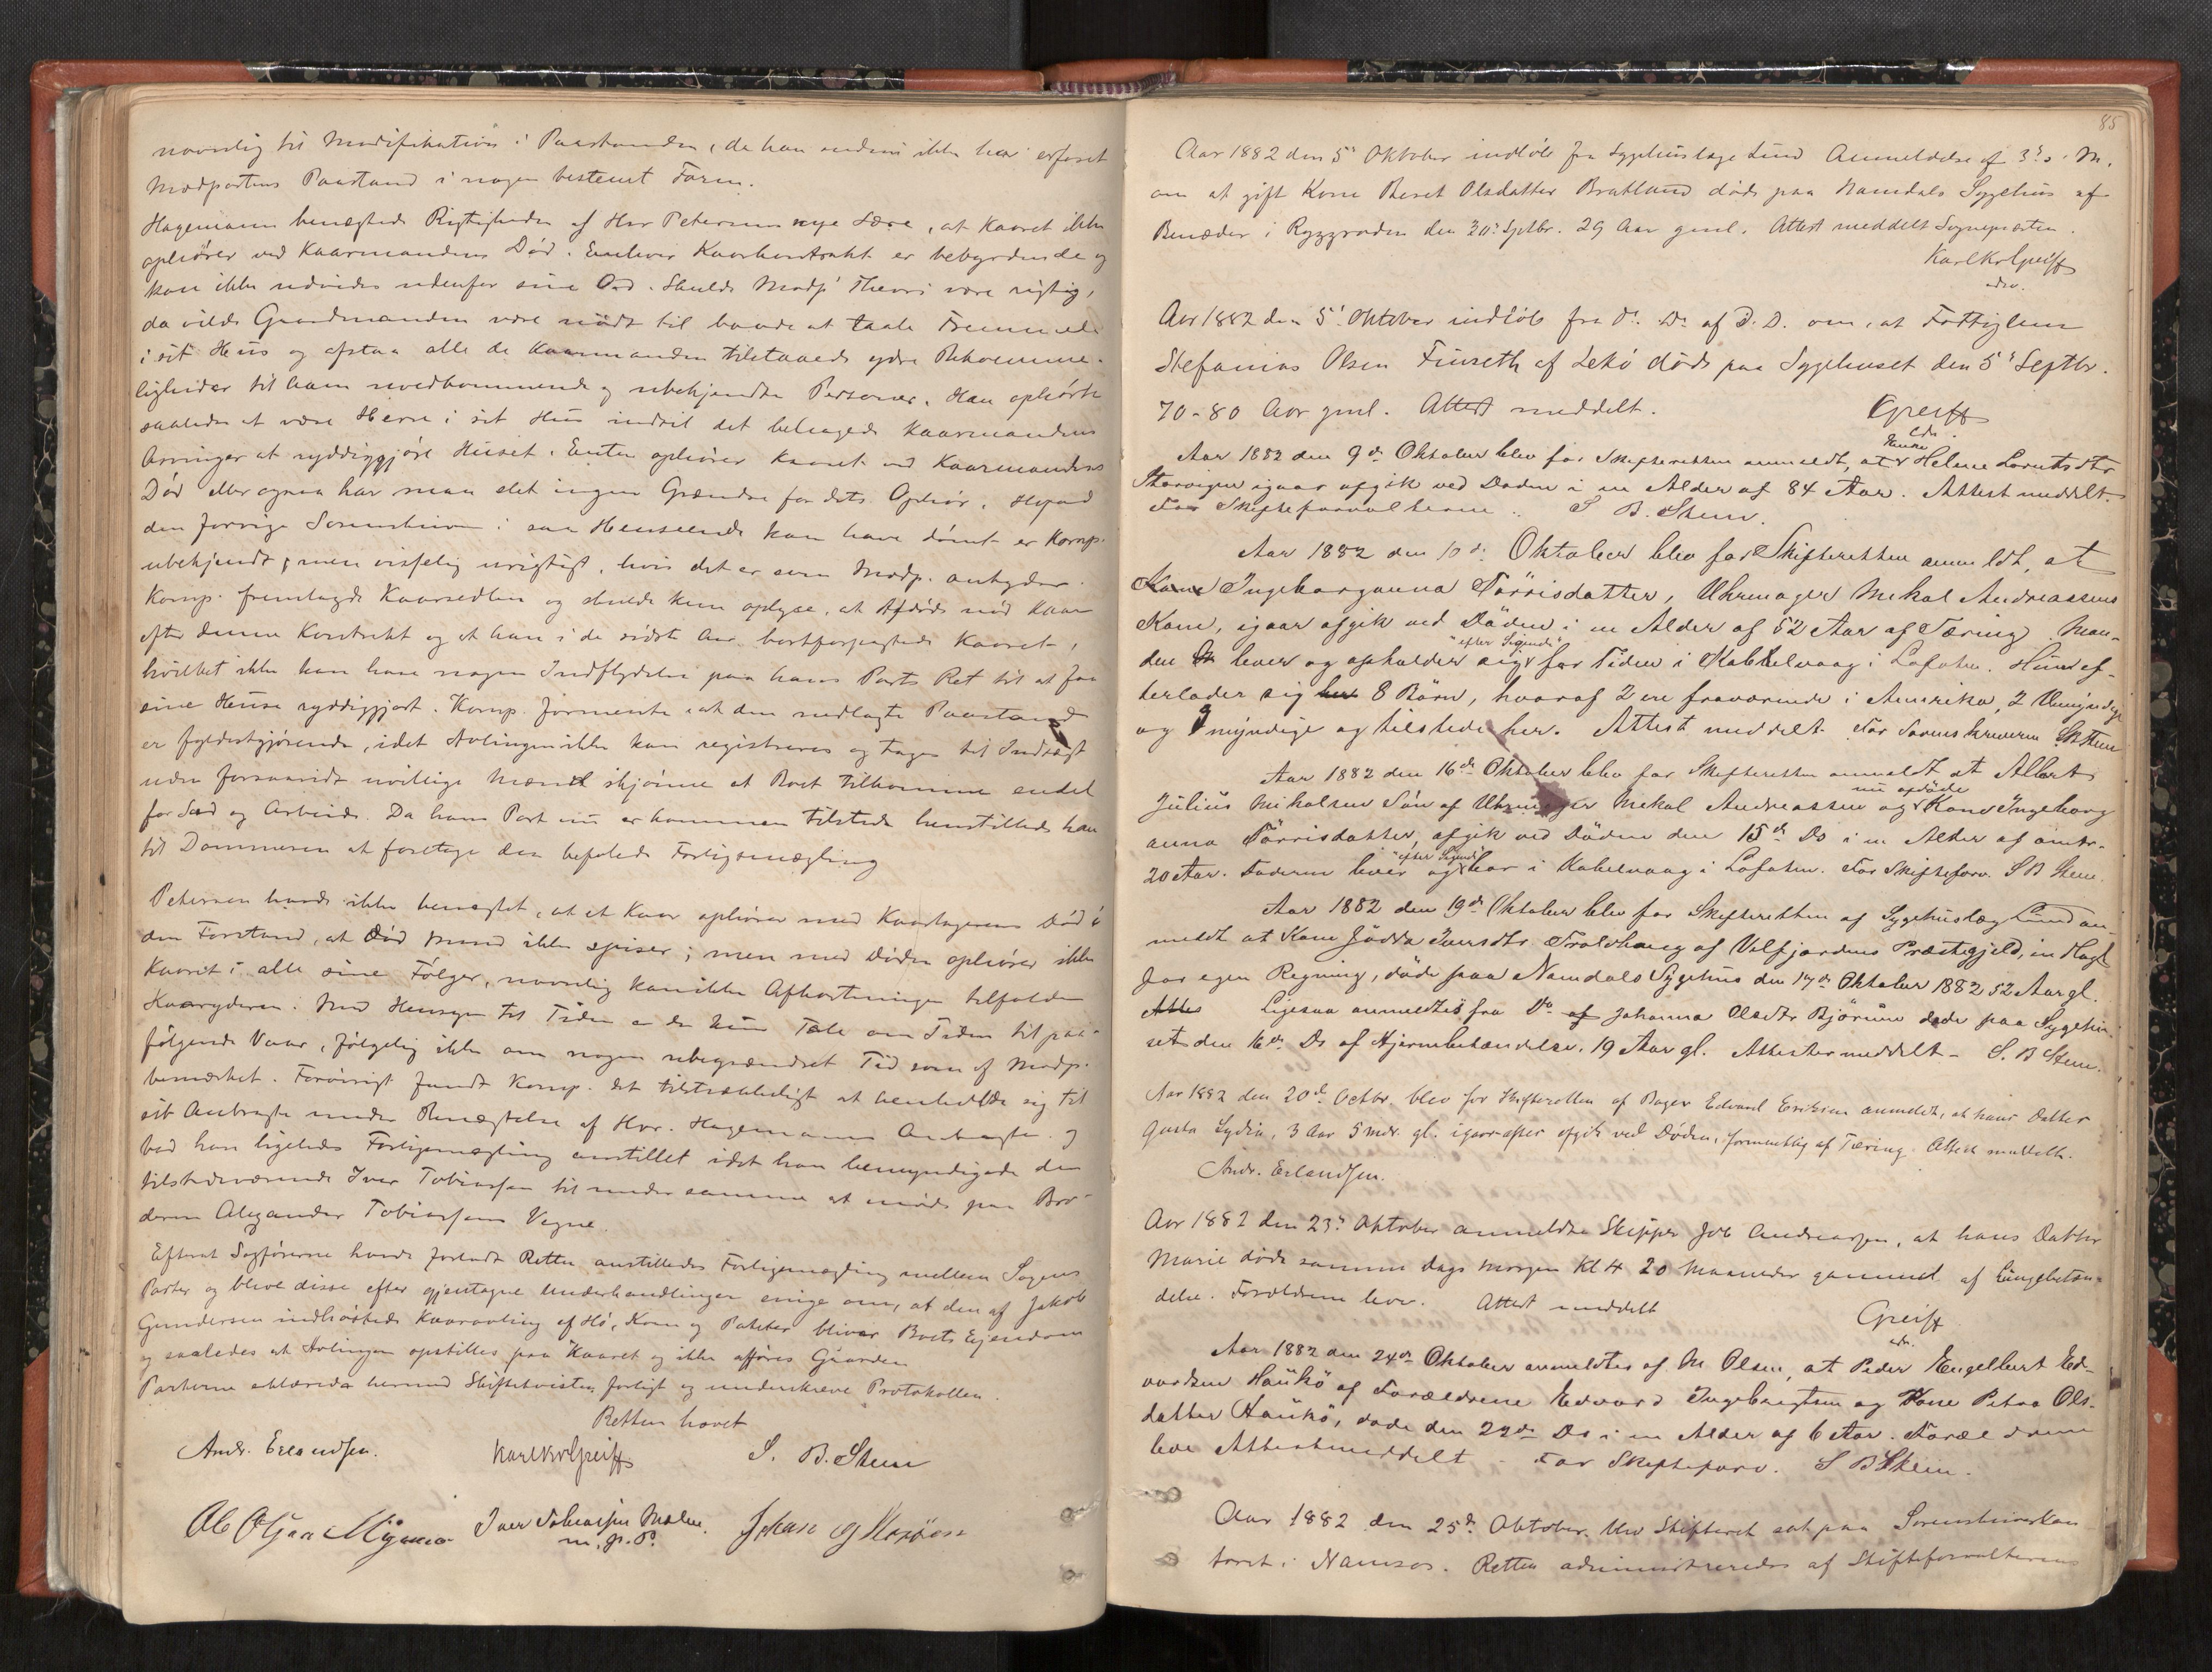 navnlig til Modifikation i Paastanden, da han endnu ikke har erfaret
Modpartens Paastand i nogen bestemt Form.
Hagemann benægtede Rigtigheden af Hr Petersens nye Lære, at Kaaret ikke
ophører ved Kaarmandens Død. Enhver Kaarkontrakt er bebyrdende og
kan ikke udvides udenfor sine Ord. Skulde Modp' Theori være rigtig,
da vilde Gaardmanden være nødt til baade at taale Fremmede
i sit Hus og afstaa alle de Kaarmanden tilstaaede ydre Bekvemme-
ligheder til ham uvedkommende og ubekjendte Personer. Han ophørte
saaledes at være Herre i sit Hus indtil det behagede Kaarmandens
Arvinger at ryddiggjøre Huset. Enten ophører Kaaret ved Kaarmandens
Død eller ogsaa har man slet ingen Grændse for dets Ophør. Hvad
den forrige Sorenskriver i saa Henseende kan have dømt er Komp.
ubekjendt, men visselig urigtigt, hvis det er som Modp. antyder.
Komp. fremlagde Kaarsedlen og skulde kun oplyse, at Afdøde nød Kaar
efter denne Kontrakt og at han i de sidste Aar bortforpagtede Kaaret,
hvilket ikke kan have nogen Indflydelse paa hans Parts Ret til at faa
sine Huse ryddiggjort. Komp. formente at den nedlagte Paastand
er fyldestgjørende, idet Avlingen ikke kan registreres og tages til Indtægt
uden forsaavidt uvillige Mænd skjønne at Boet tilkomme endel
for Sæd og Arbeide. Da hans Part nu er kommen tilstede henstillede han
til Dommeren at foretage den befalede Forligsmægling
Petersen havde ikke benægtet, at et Kaar ophører med Kaartagerens Død i
den Forstand, at død Mand ikke spiser; men med Døden ophører ikke
Kaaret i alle sine Følger, navnlig kan ikke Afkortninger tilfalde
Kaaryderen. Med Hensyn til Tiden er der kun Tale om Tiden til paa-
følgende Vaar, følgelig ikke om nogen ubegrændset Tid som af Modp.
bemærket. Forøvrigt fandt Komp. det tilstrækkeligt at henholde sig til
sit Anbragte under Benægtelse af Hr. Hagemanns Anbragte og
bad han ligeledes Forligsmægling anstillet idet han bemyndigede den
tilstedeværende Iver Tobiassen til under samme at møde paa Bro-
deren Alexander Tobiassens Vegne.
Efterat Sagførerne havde forladt Retten anstilledes Forligsmægling mellem Sagens
Parter og bleve disse efter gjentagne Underhandlinger enige om, at den af Jakob
Gundersen indhøstede Kaaravling af Hø, Korn og Poteter bliver Boets Eiendom
og saaledes at Avlingen opstilles paa Kaaret og ikke afføres Gaarden
Parterne erklærede hermed Skiftetvisten forligt og underskreve Protokollen.
Retten hævet
Andr. Erlandsen. Karl Kr Greiff S. B. Stene
Ole Iver Tobiassen Malm. Johan
m. p. P.
85
Aar 1882 den 5' Oktober indløb fra Sygehuslæge Lund Anmeldelse af 3' s. M.
om at gift Kone Beret Olsdatter Bratland døde paa Namdals Sygehus af
Benæder i Ryggraden den 30' Septbr. 29 Aar gml. Attest meddelt Sognepræsten.
Karl Kr Greiff
edsv.
Aar 1882 den 5' Oktober indløb fra Do. Do af D. D. om, at Fattiglem
Stefanias Olsen Finseth af Lekø døde paa Sygehuset den 5' Septbr.
70-80 Aar gml. Attest meddelt. Greiff
edsv.
Aar 1882 den 9de Oktober blev for Skifteretten anmeldt, at Enken Helene Lorntsdtr
Storvigen igaar afgik ved Døden i en Alder af 84 Aar. Attest meddelt.
For Skifteforvalteren. S B. Stene.
Aar 1882 den 10de Oktober blev for Skifteretten anmeldt, at
Kone Ingeborganna Tørrisdatter, Uhrmager Mekal Andreassens
Kone, igaar afgik ved Døden i en Alder af 52 Aar af Tæring. Man-
den lever og opholder sig "efter Sigende" for Tiden i Kabbelvaag i Lofoten. Hun ef-
terlader sig 8 Børn, hvoraf 2 ere fraværende i Amerika, 2 Umyndige
og myndige og tilstede her. Attest meddelt. For Sorenskriveren SBStene
Aar 1882 den 16de Oktober blev for Skifteretten anmeldt at Albert
Julius Mikalsen Søn af Uhrmager Mekal Andreassen og nu afdøde Kone Ingeborg
anna Tørrisdatter, afgik ved Døden den 15de Ds i en Alder af omtr.
20 Aar. Faderen lever og "efter Sigende" bor i Kabelvaag i Lofoten. For Skifteforv. S B Stene.
Aar 1882 den 19de Oktober blev for Skifteretten af Sygehuslæge Lund an-
meldt at Kone Jødda Iversdtr Trolshaug af Velfjordens Præstegjeld, en
for egen Regning, døde paa Namdals Sygehus den 17de Oktober 1882 52 Aar gl.
Attes Ligesaa anmeldtes fra Do af Johanna Olsdtr Bjørum døde paa Sygehu-
set den 16de Ds af Hjernebetændelse. 19 Aar gl. Attester meddelt - S. B Stene.
Aar 1882 den 20de Octbr. blev for Skifteretten af Bager Edvard Eriksen anmeldt, at hans Datter
Gusta Lydia, 3 Aar 5 Mdr. gl. igaaraftes afgik ved Døden, formentlig af Tæring. Attest meddelt.
Andr. Erlandsen.
Aar 1882 den 23' Oktober anmeldte Skipper Job Andreassen, at hans Datter
Marie døde samme Dags Morgen Kl 4 20 Maaneder gammel af Lungebetæn-
delse. Forældrene lever. Attest meddelt Greiff
edsv.
Aar 1882 den 24de Oktober anmeldtes af M. Olsen, at Peder Engelbert Ed-
vardsen Haukø af Forældrene Edvard Ingebrigtsen og Kone Petra Ols-
datter Haukø, døde den 22de Ds i en Alder af 6 Aar. Forældrene
leve Attest meddelt - For Skifteforv. S B Stene.
Aar 1882 den 25de Oktober blev Skifteret sat paa Sorenskriverkon
toret i Namsos. Retten administreredes af Skifteforvalterens